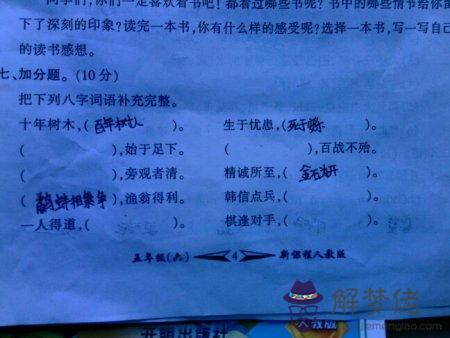 同学们,你们一定喜欢看书吧！都看过哪些书呢？书中的哪些情节给你留
下了深刻的印象？读完一本书,你有什么样的感受呢？选择一本书,写一写自己
的读书感想。
七、加分题。(10分)
把下列八字词语补充完整。
十年树木,(百年树人)。 生于忧患,(死于)。
( ),始于足下。 ( ),百战不殆。
( ),旁观者清。 精诚所至,(金石)。
(鹬蚌相争),渔翁得利。 韩信点兵,( )。
一人得道,( )。 棋逢对手,( )。
五年级(六) 4 新课程人教版
解梦佬
jiemenglao.com
开明出版社
人教版